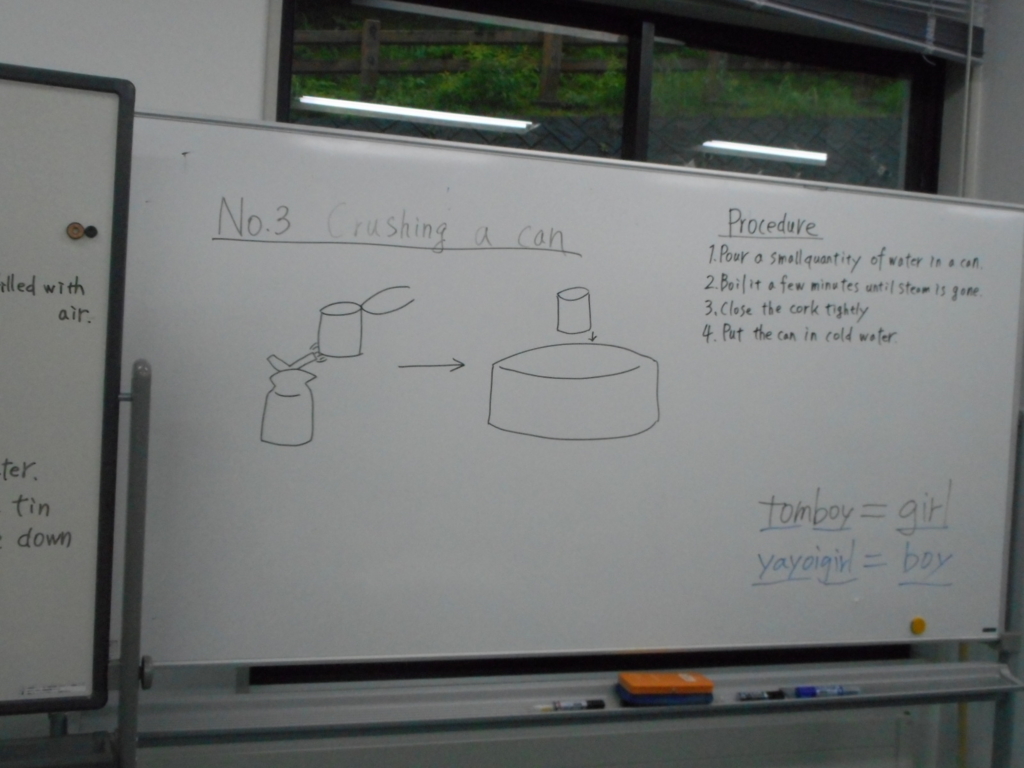 illed with
air.
ter.
tin
down
No.3 Crushing a can
Procedure
1. Pour a small quantity of water in a can.
2. Boil it a few minutes until steam is gone.
3. Close the cork tightly
4. Put the can in cold water.
tomboy = girl
yayoigirl = boy